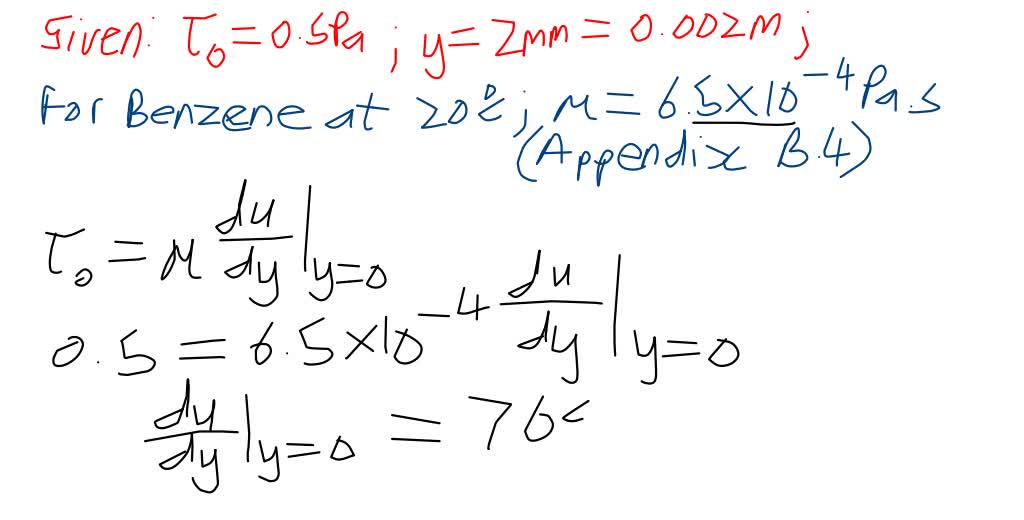 Given: τ₀ = 0.5Pa ; y = 2mm = 0.002m ;
For Benzene at 20°c ; μ = 6.5×10⁻⁴ Pa.s
(Appendix B.4)
τ₀ = μ du/dy |y=0
0.5 = 6.5×10⁻⁴ du/dy |y=0
du/dy |y=0 = 76